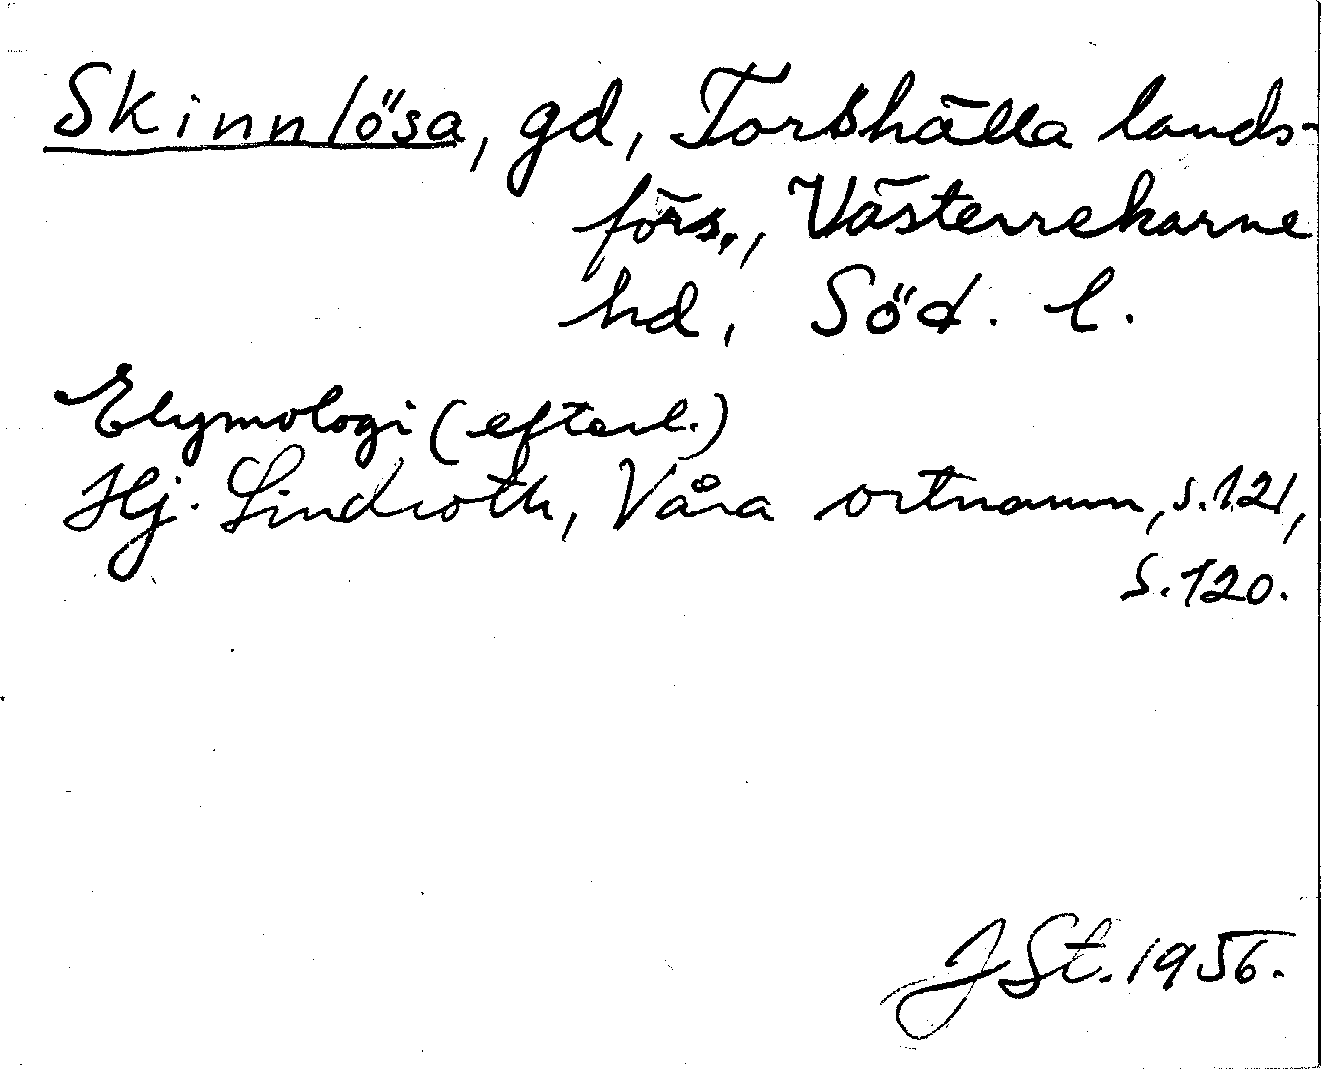 Skinnlösa, gd, Torshälla lands-
förs., Västerrekarne
hd, Söd. l.
Etymologi (efterl.)
Hj. Lindroth, Våra ortnamn, s. 121,
s. 120.
JSt. 1956.